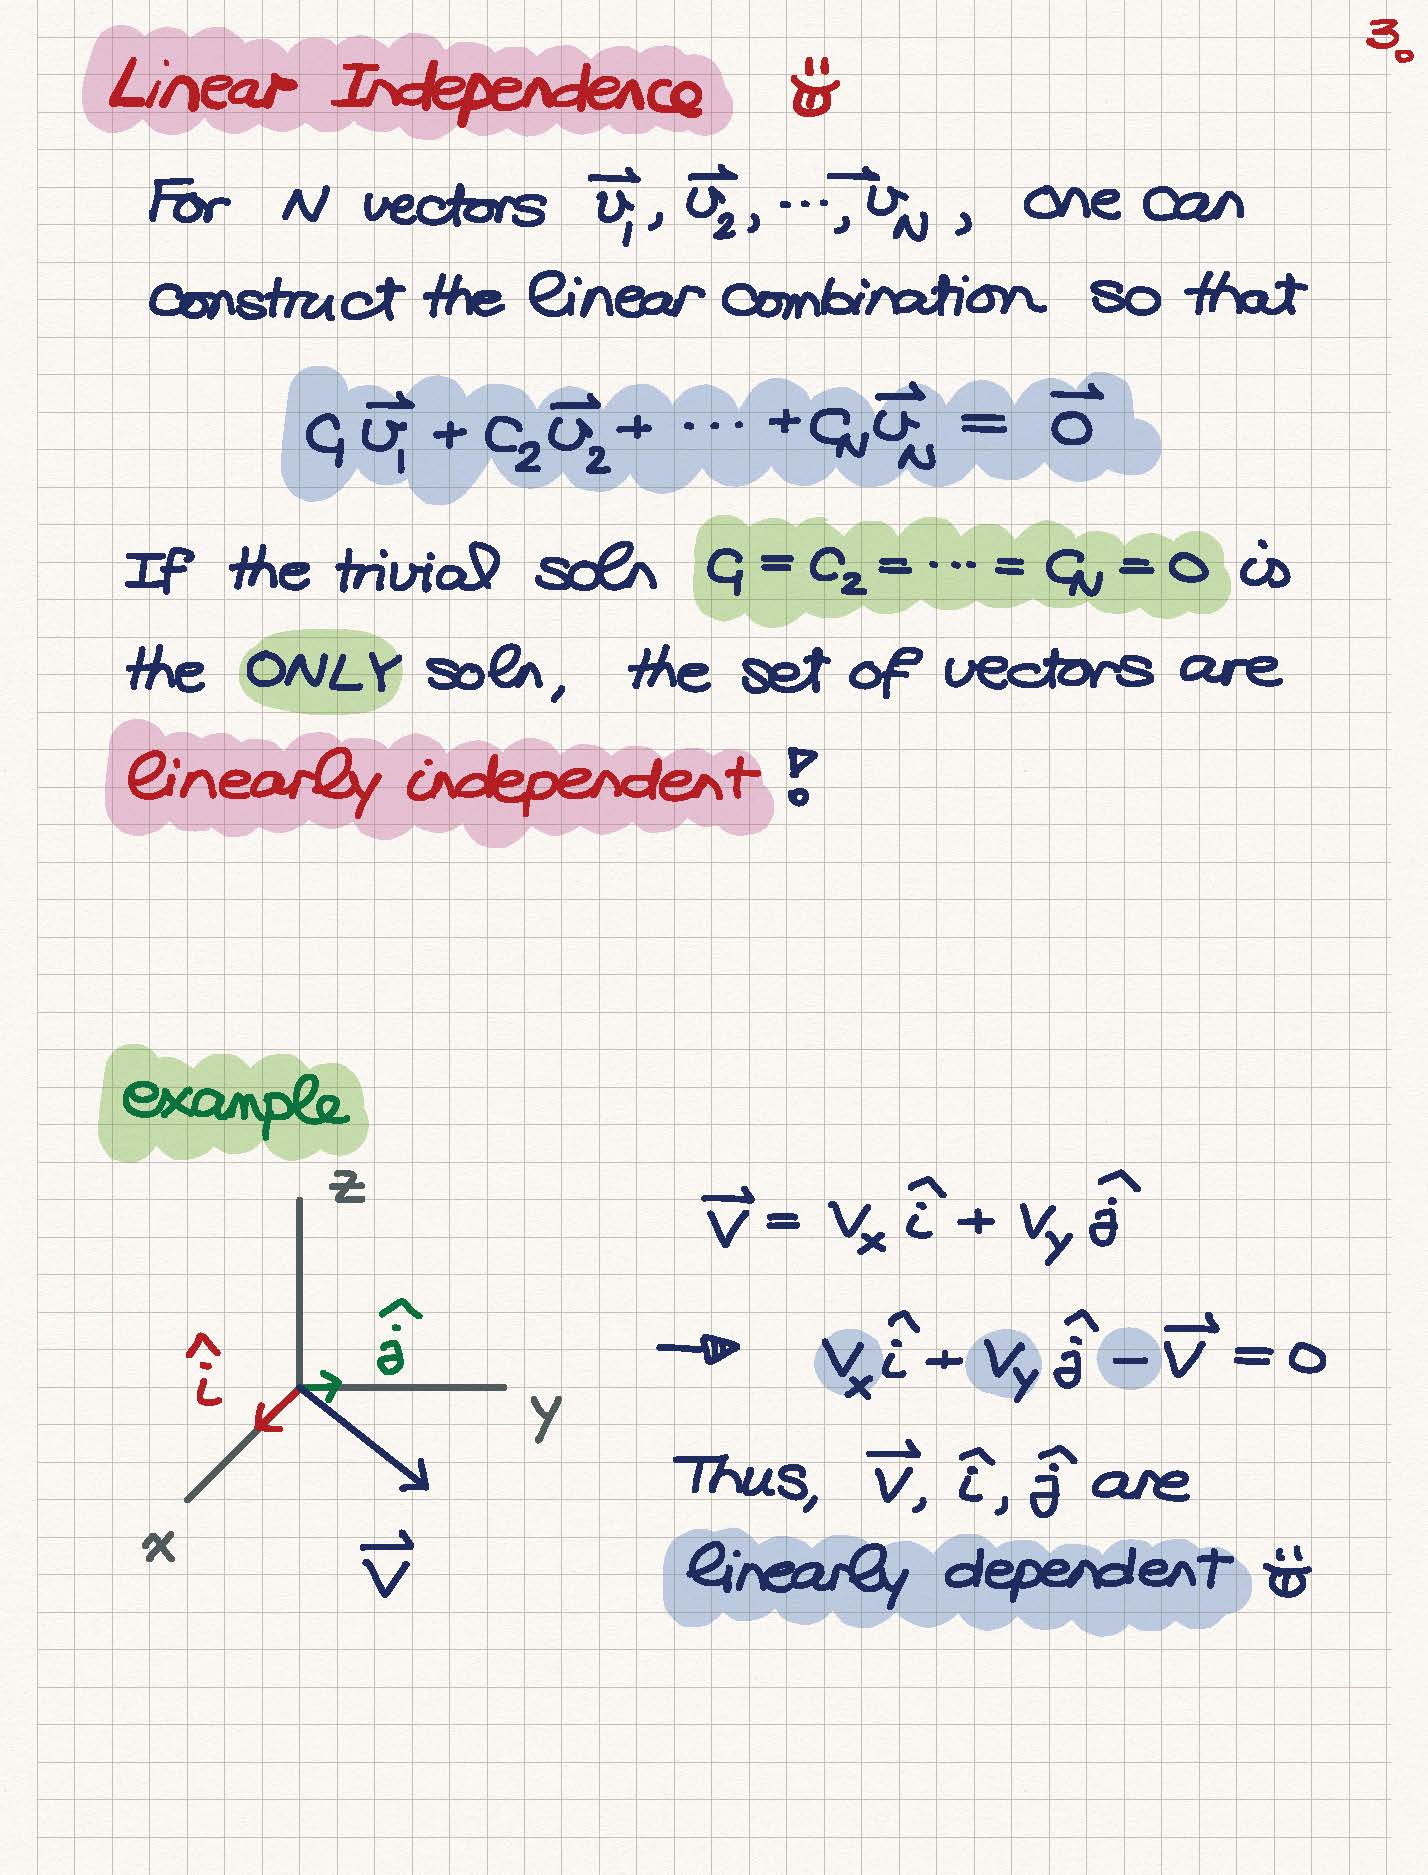 3.
Linear Independence
For N vectors v⃗₁, v⃗₂, ⋯, v⃗_N, one can
construct the linear combination so that
C₁v⃗₁ + C₂v⃗₂ + ⋯ + C_N v⃗_N = 0⃗
If the trivial soln C₁ = C₂ = ⋯ = C_N = 0 is
the ONLY soln, the set of vectors are
linearly independent!
example
z
ĵ
î
y
x
V⃗
V⃗ = Vₓ î + V_y ĵ
→ Vₓ î + V_y ĵ − V⃗ = 0
Thus, V⃗, î, ĵ are
linearly dependent